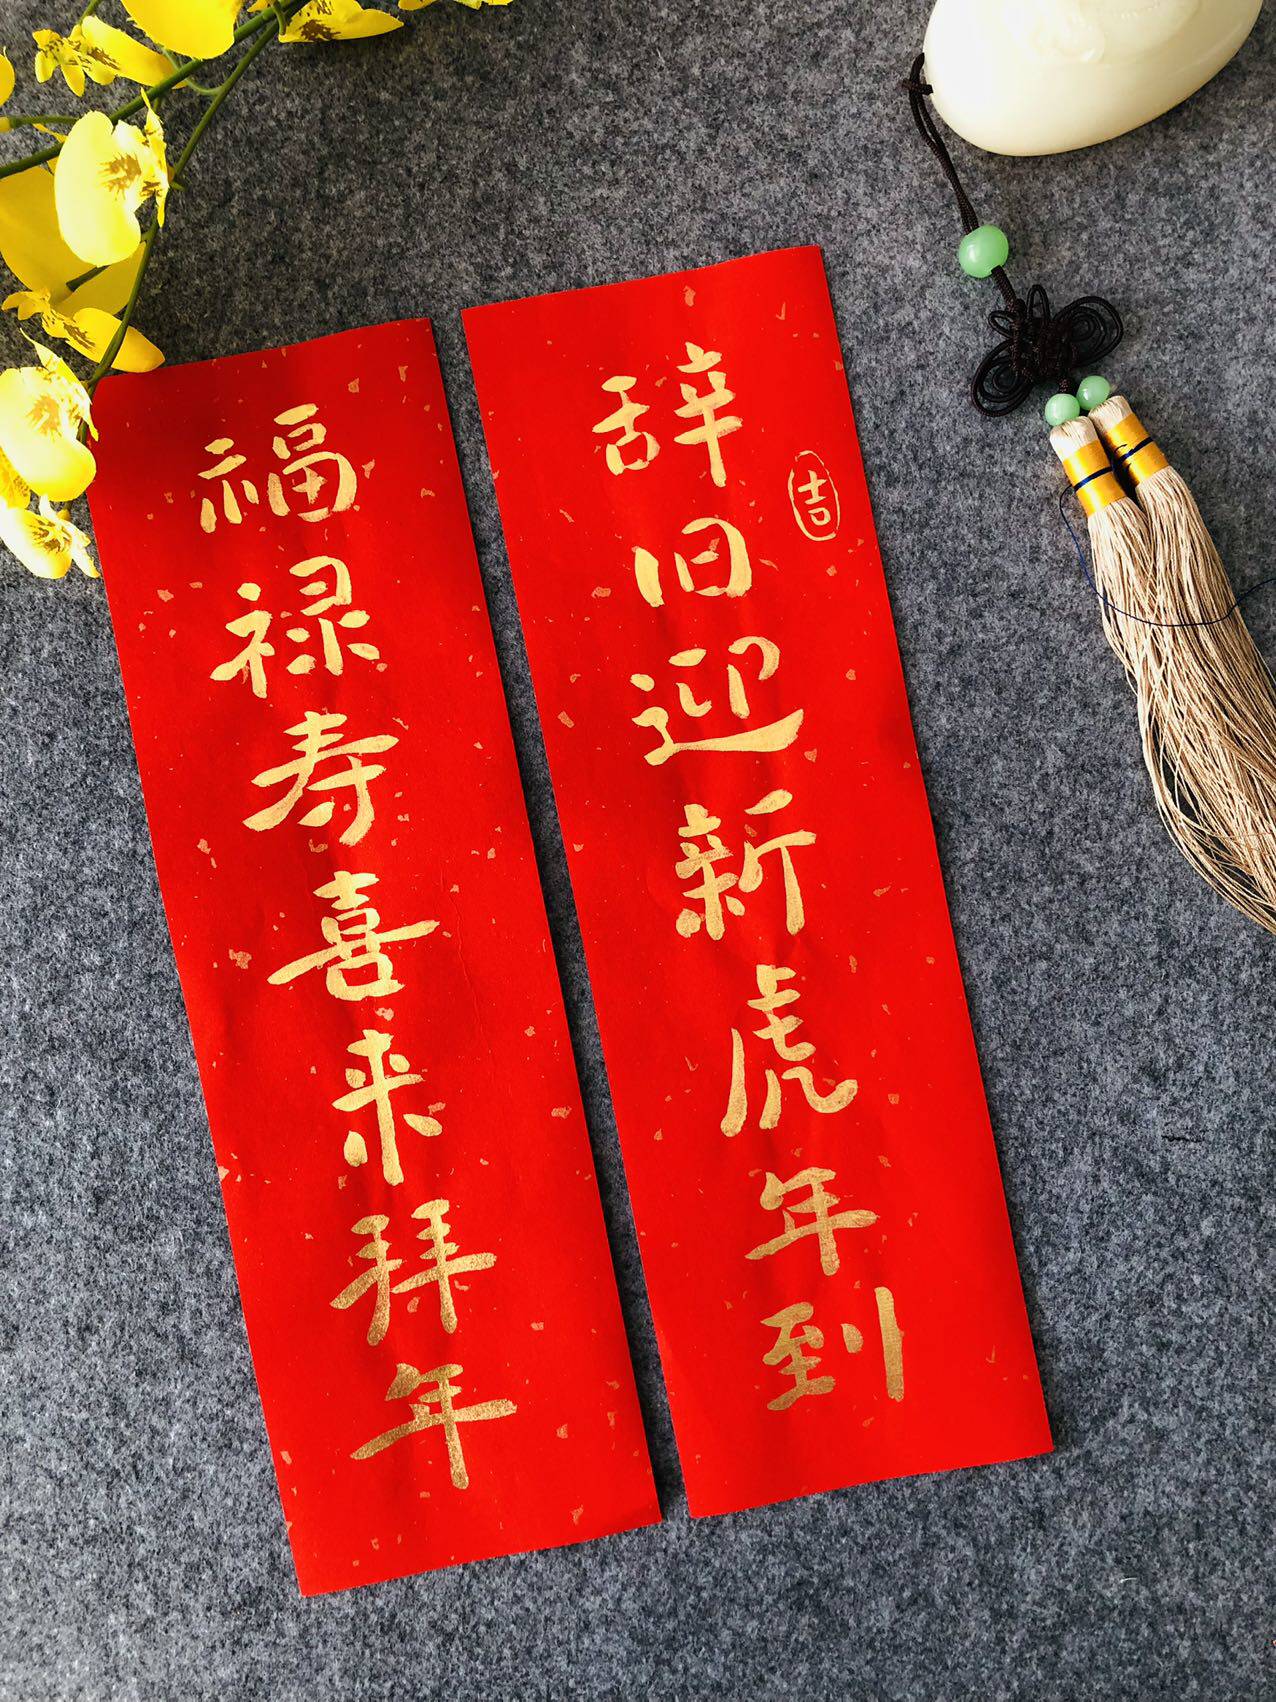 辞旧迎新虎年到
吉
福禄寿喜来拜年